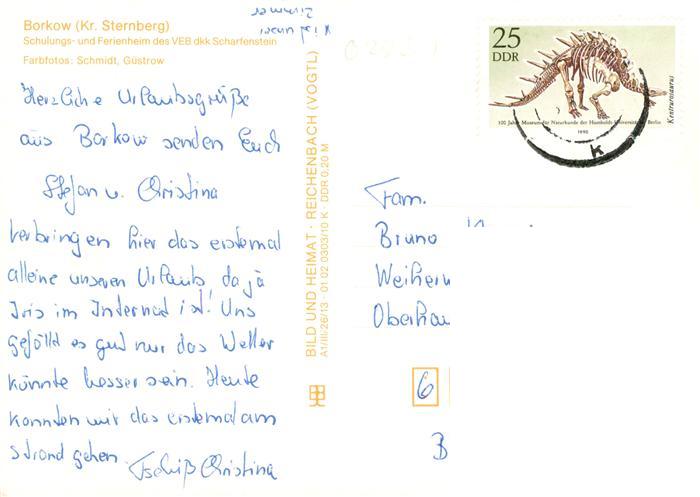 Borkow (Kr. Sternberg)
Schulungs- und Ferienheim des VEB dkk Scharfenstein
Farbfotos: Schmidt, Güstrow
Hier unser
Zimmer
Herzliche Urlaubsgrüße
aus Borkow senden Euch
Stefan u. Christina
Verbringen hier das erstemal
alleine unseren Urlaub, da ja
Iris im Internat ist! Uns
gefällt es gut nur das Wetter
könnte besser sein. Heute
konnten wir das erstemal am
Strand gehen.
Tschüß Christina
BILD UND HEIMAT · REICHENBACH (VOGTL)
A1/III/26/13 · 01 02 0303/10 K · DDR 0,20 M
25
DDR
Kentrurosaurus
100 Jahre Museum für Naturkunde der Humboldt-Universität zu Berlin
1990
K
Fam.
Bruno
Weihern
Oberhau
6
B